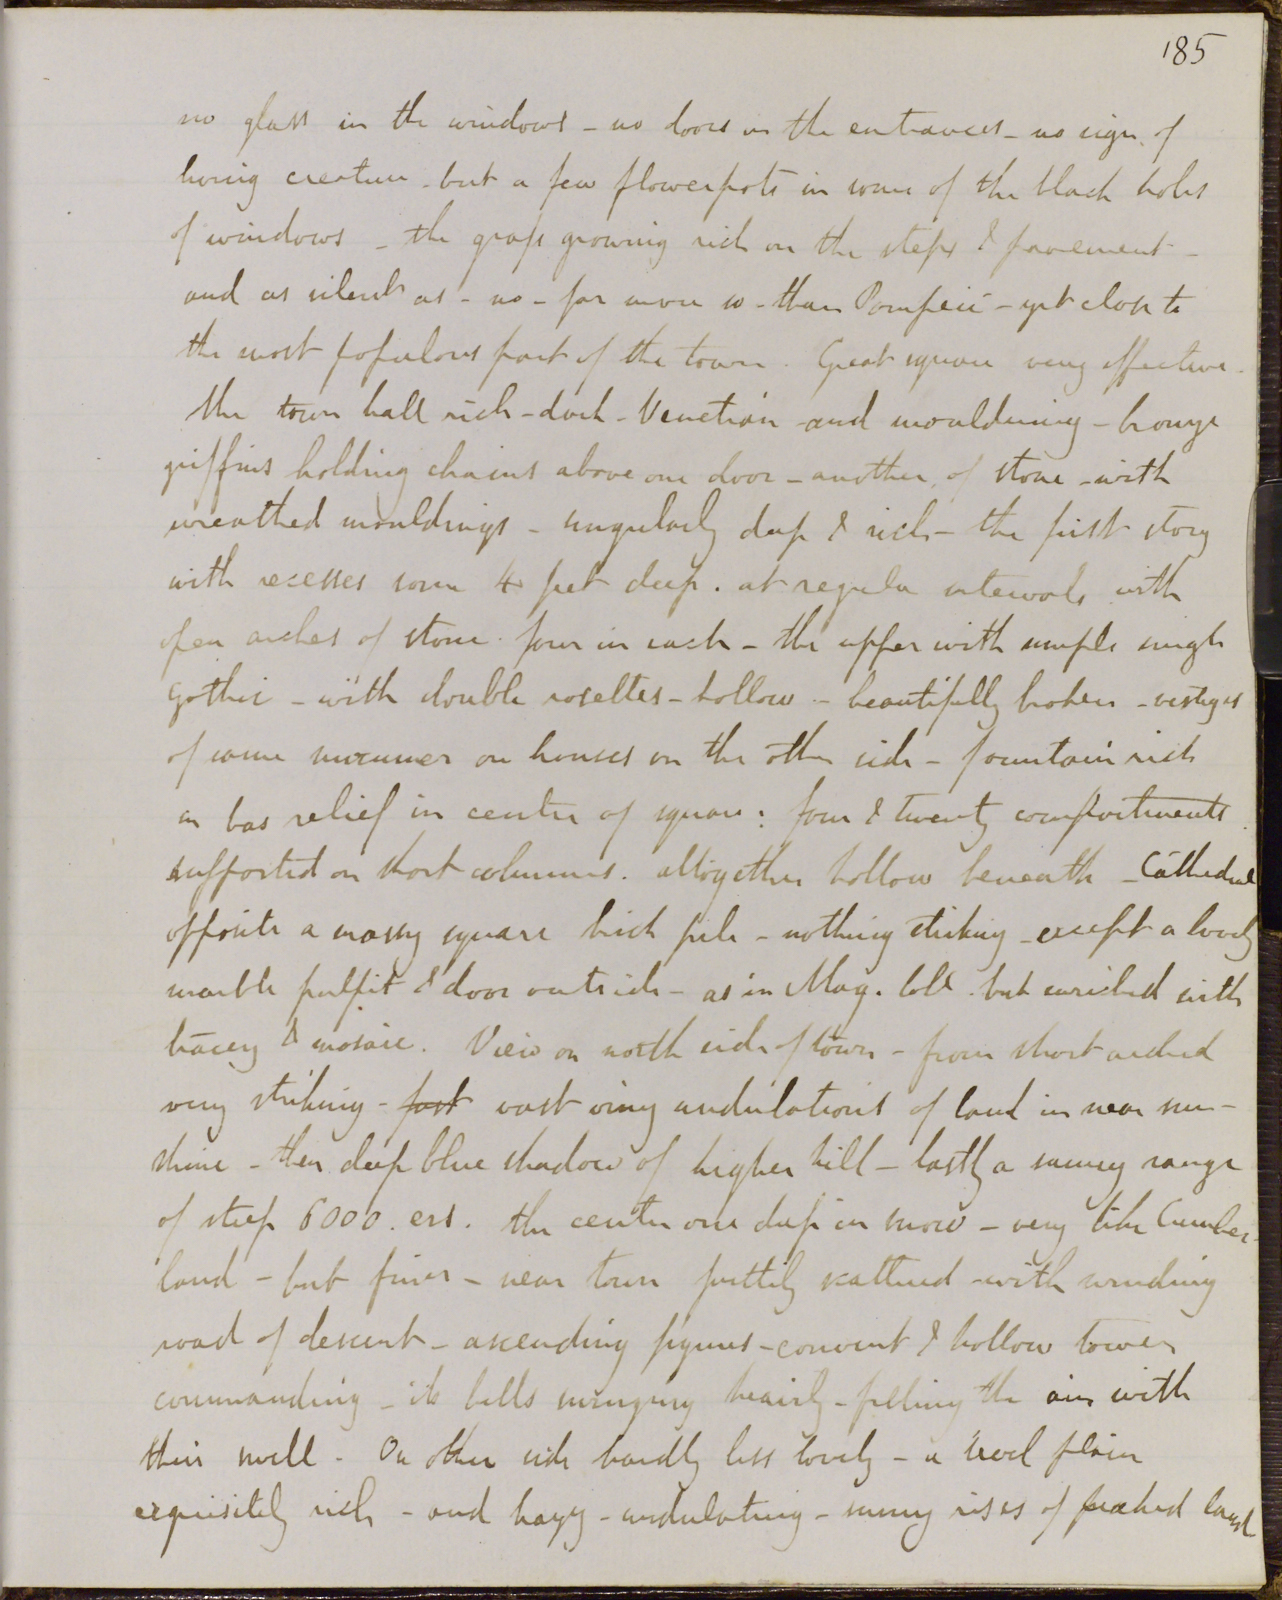 185
no glass in the windows - no doors in the entrances - no sign of
living creature - but a few flowerpots in some of the black holes
of windows - the grass growing rich on the steps & pavement -
and as silent as - no - far more so - than Pompeii - yet close to
the most populous part of the town. Great square very effective.
The town hall rich - dark - Venetian - and mouldering - bronze
griffins holding chains above one door - another, of stone - with
wreathed mouldings - singularly deep & rich - the first story
with recesses some 4 feet deep. at regular intervals with
open arches of stone. four in each - the upper with simple single
Gothic - with double rosettes - hollow - beautifully broken - vestiges
of same manner on houses on the other side - fountain rich
in bas relief in center of square: four & twenty compartments
supported on short columns. altogether hollow beneath - Cathedral
opposite a massy square brick pile - nothing striking - except a lovely
marble pulpit & door outside - as in Mag. Coll. but enriched with
tracery & mosaic. View on north side of town - from short arched
very striking - fast vast viny undulations of land in near sun-
shine - then deep blue shadow of higher hill - lastly a sunny range
of steep 6000.ers. the center one deep in snow - very like Cumber-
land - but finer - near town prettily scattered - with winding
road of descent - ascending figures - convent & hollow tower
commanding - its bells swinging heavily - filling the air with
their swell - On other side hardly less lovely - a level plain
exquisitely rich - and hazy - undulating - sunny rises of peaked land